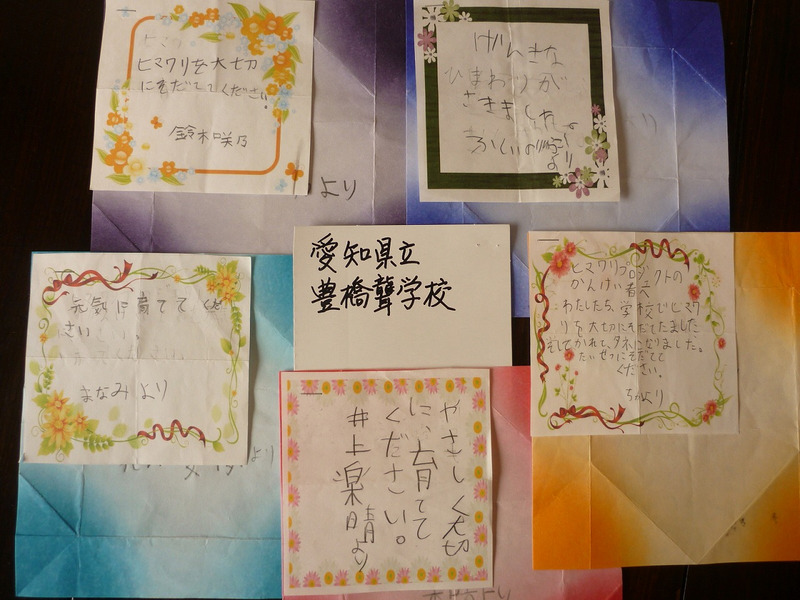 ヒマワリを大切
にそだててください。
鈴木咲乃
げんきな
ひまわりが
さきました
より
より
愛知県立
豊橋聾学校
元気に育ててくだ
さい
まなみより
より
ヒマワリプロジェクトの
かんけい者へ
わたしたち、学校でヒマワ
リを大切にそだてたました
そしてかれて、タネになりました。
たいせつにそだてて
ください。
ちかより
やさしく大切
に、育てて
ください。
井上楽晴より
より